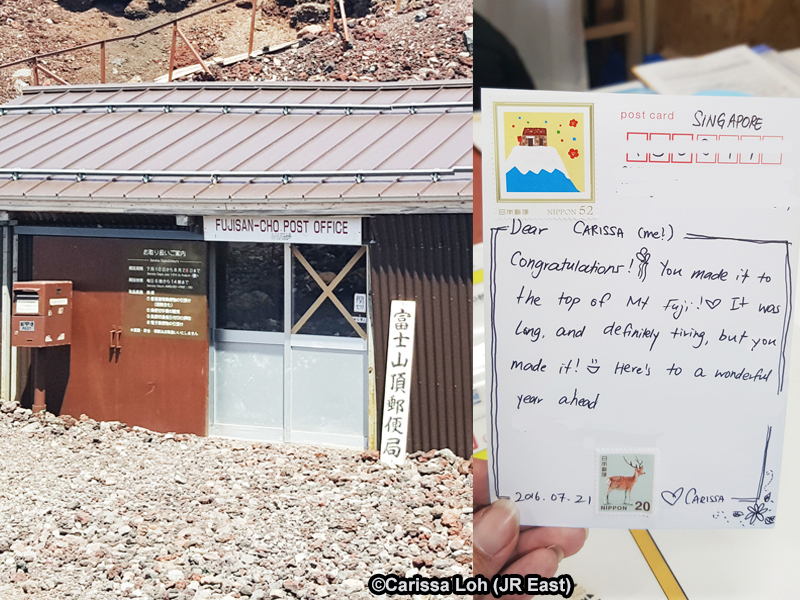 FUJISAN-CHO POST OFFICE
お取り扱いご案内
富士山頂郵便局
post card
SINGAPORE
日本郵便 NIPPON 52
Dear CARISSA (me!)
Congratulations! You made it to
the top of Mt Fuji! It was
long, and definitely tiring, but you
made it! Here's to a wonderful
year ahead
日本郵便
NIPPON 20
2016.07.21
CARISSA
©Carissa Loh (JR East)